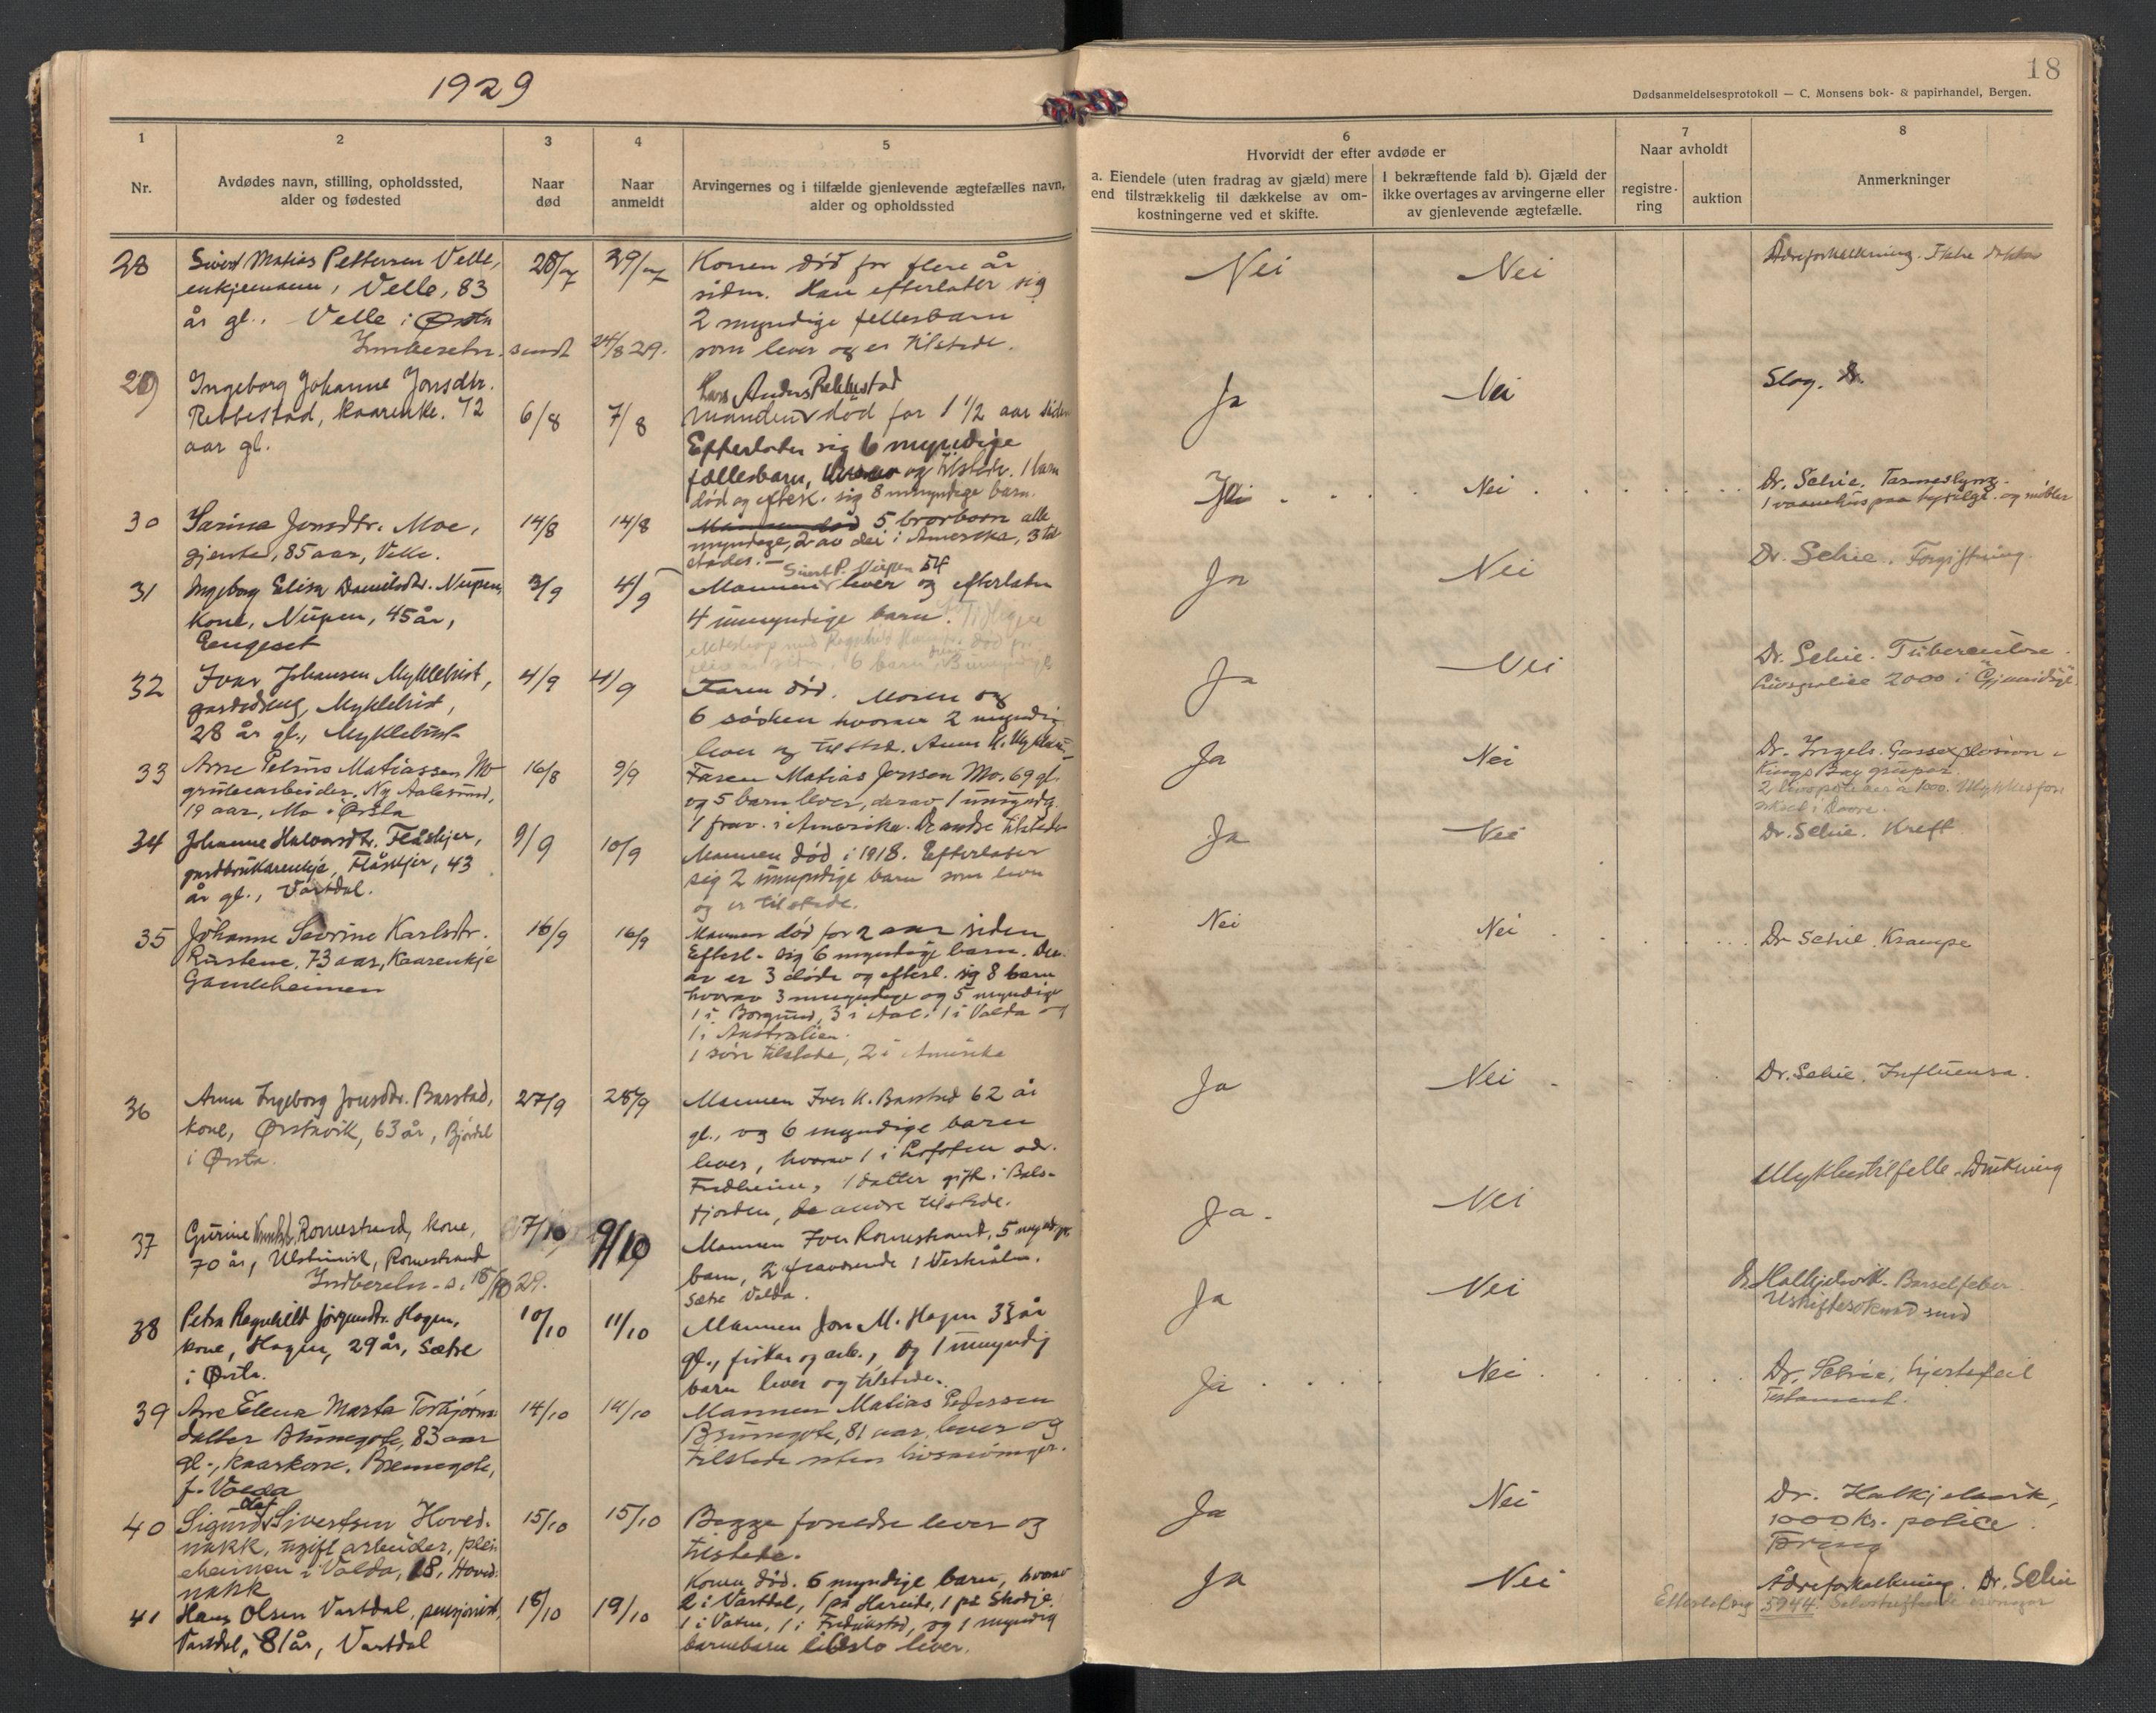 1929
18
Dødsanmeldelsesprotokoll — C. Monsens bok- & papirhandel, Bergen.
1
Nr.
2
Avdødes navn, stilling, opholdssted,
alder og fødested
3
Naar
død
4
Naar
anmeldt
5
Arvingernes og i tilfælde gjenlevende ægtefælles navn,
alder og opholdssted
6
Hvorvidt der efter avdøde er
a. Eiendele (uten fradrag av gjæld) mere
end tilstrækkelig til dækkelse av om-
kostningerne ved et skifte.
I bekræftende fald b). Gjæld der
ikke overtages av arvingerne eller
av gjenlevende ægtefælle.
7
Naar avholdt
registre-
ring
auktion
8
Anmerkninger
28
Sivert Matias Pettersen Velle,
enkjemann, Velle, 83
år gl., Velle i Ørsta
Innberetn. sendt 24/8 29.
28/7
29/7
Konen død for flere år
siden. Han efterlater sig
2 myndige fellesbarn
som lever og er tilstede.
Nei
Nei
Adreforkalkning. Ikke
29
Ingeborg Johanne Jonsdtr.
Rebbestad, kaarenke. 72
aar gl.
6/8
7/8
Lars Anders Rebbestad
Manden død for 1 1/2 aar siden
Efterlater sig 6 myndige
fællesbarn, og tilstede. 1 barn
død og efterl. sig 8 umyndige barn.
Ja
Nei
Slag. Dr.
30
Sarina Jonsdtr. Moe,
gjente, 85 aar, Velle.
14/8
14/8
Mannen død 5 brorborn alle
myndige, 2 av dei i Amerika, 3 til
stades.
Nei
Dr. Schie. Tarmeslyng.
1 vaanehus paa og møbler
31
Ingeborg Elisa Danielsdtr. Nupen,
kone, Nupen, 45 år,
Engeset
3/9
4/9
Sivert P. Nupen 54
Mannen lever og efterlater
4 umyndige barn.
6 barn
Ja
Nei
Dr. Schie. Forgiftning.
32
Ivar Johansen Myklebust,
gardsdreng, Myklebust,
28 år gl., Myklebust
4/9
4/9
Faren død. Moren og
6 søsken hvorav 2 myndig
lever og tilsted. Anne K. Myklebust
Ja
Nei
Dr. Schie. Tuberculose.
Livspolice 2000 i Gjensidige
33
Arne Petrus Matiassen Mo
grubearbeider. Ny Aalesund,
19 aar, Mo i Ørsta
16/8
9/9
Faren Matias Jonsson Mo, 69 gl.
og 5 barn lever, derav 1 umyndg.
1 frav. i Amerika. De andre tilstede
Ja
Nei
Dr. Ingels. Gassexplosion i
Kings Bay gruper.
2 livspoliser a 1000. Ulykkesfor
34
Johanne Halvardtr. Flåskjer,
gardbrukarenkje, Flåskjer, 43
år gl., Vartdal.
9/9
10/9
Mannen død i 1918. Efterlater
sig 2 umyndige barn som lever
og er tilstede.
Ja
Nei
Dr. Schie. Kreft
35
Johanne Severine Karlsdtr.
Rustene, 73 aar, Kaarenkje
Gamleheimen
16/9
16/9
Mannen død for 2 aar siden
Efterl. sig 6 myndige barn. Der-
av er 3 døde og efterl. sig 8 barn
hvorav 3 umyndige og 5 myndige
1 i Borgund, 3 i Aal. 1 i Volda og
1 i Australien.
1 søn tilstede, 2 i Amerika
Nei
Nei
Dr Schie. Krampe
36
Anne Ingeborg Jonsdtr. Barstad,
kone, Ørstavik, 63 år, Bjørdal
i Ørsta.
27/9
28/9
Mannen Iver K. Barstad 62 år
gl., og 6 myndige barn
lever, hvorav 1 i Lofoten adr.
Fredheim, 1 datter gift i Bals-
fjorden, de andre tilstede.
Ja
Nei
Dr. Schie. Influensa.
37
Gurine Romestrand, kone,
70 år, Ulsteinvik, Romestrand
Indberetn. s. 15/10 29.
7/10
9/10
Mannen Iver Romestrand, 5 myndige
barn, 2 fraværende 1 Vestnålen.
Sætre Volda.
Ja.
Nei
Ulykkestilfelle. Drukning
38
Petra Ragnhild Jørgensdtr. Hagen,
kone, Hagen, 29 år, Sætre
i Ørsta.
10/10
11/10
Mannen Jon M. Hagen 33 år
gl., fiskar og arb., og 1 umyndig
barn lever og tilstede.
Ja
Nei
Dr. Halkjelsvik. Barselfeber.
39
Ane Elena Marta Torbjørns-
datter Brunegote, 83 aar
gl., kaarkone. Brunegote,
f. Volda
14/10
14/10
Mannen Matias Pedersen
Brunegote, 81 aar, lever og
tilstede uten livsarvinger.
Ja
Nei
Dr. Schie, hjertefeil
Testament.
40
Sigurd Olaf Sivertsen Hoved-
nakk, ugift arbeider, plei-
eheimen i Volda, 18, Hoved-
nakk
15/10
15/10
Begge foreldre lever og
tilstede.
Ja
Nei
Dr. Halkjelsvik,
1000 kr. police.
Tæring
41
Hans Olsen Vartdal, pensjonist,
Vartdal, 81 år, Vartdal
18/10
19/10
Konen død. 6 myndige barn, hvorav
2 i Vartdal, 1 på Hareide, 1 på Skodje.
1 i Vatne, 1 i Fredrikstad, og 1 myndig
barnebarn i Oslo lever.
Ja
Nei
Ådreforkalkning. Dr. Schie
5944.